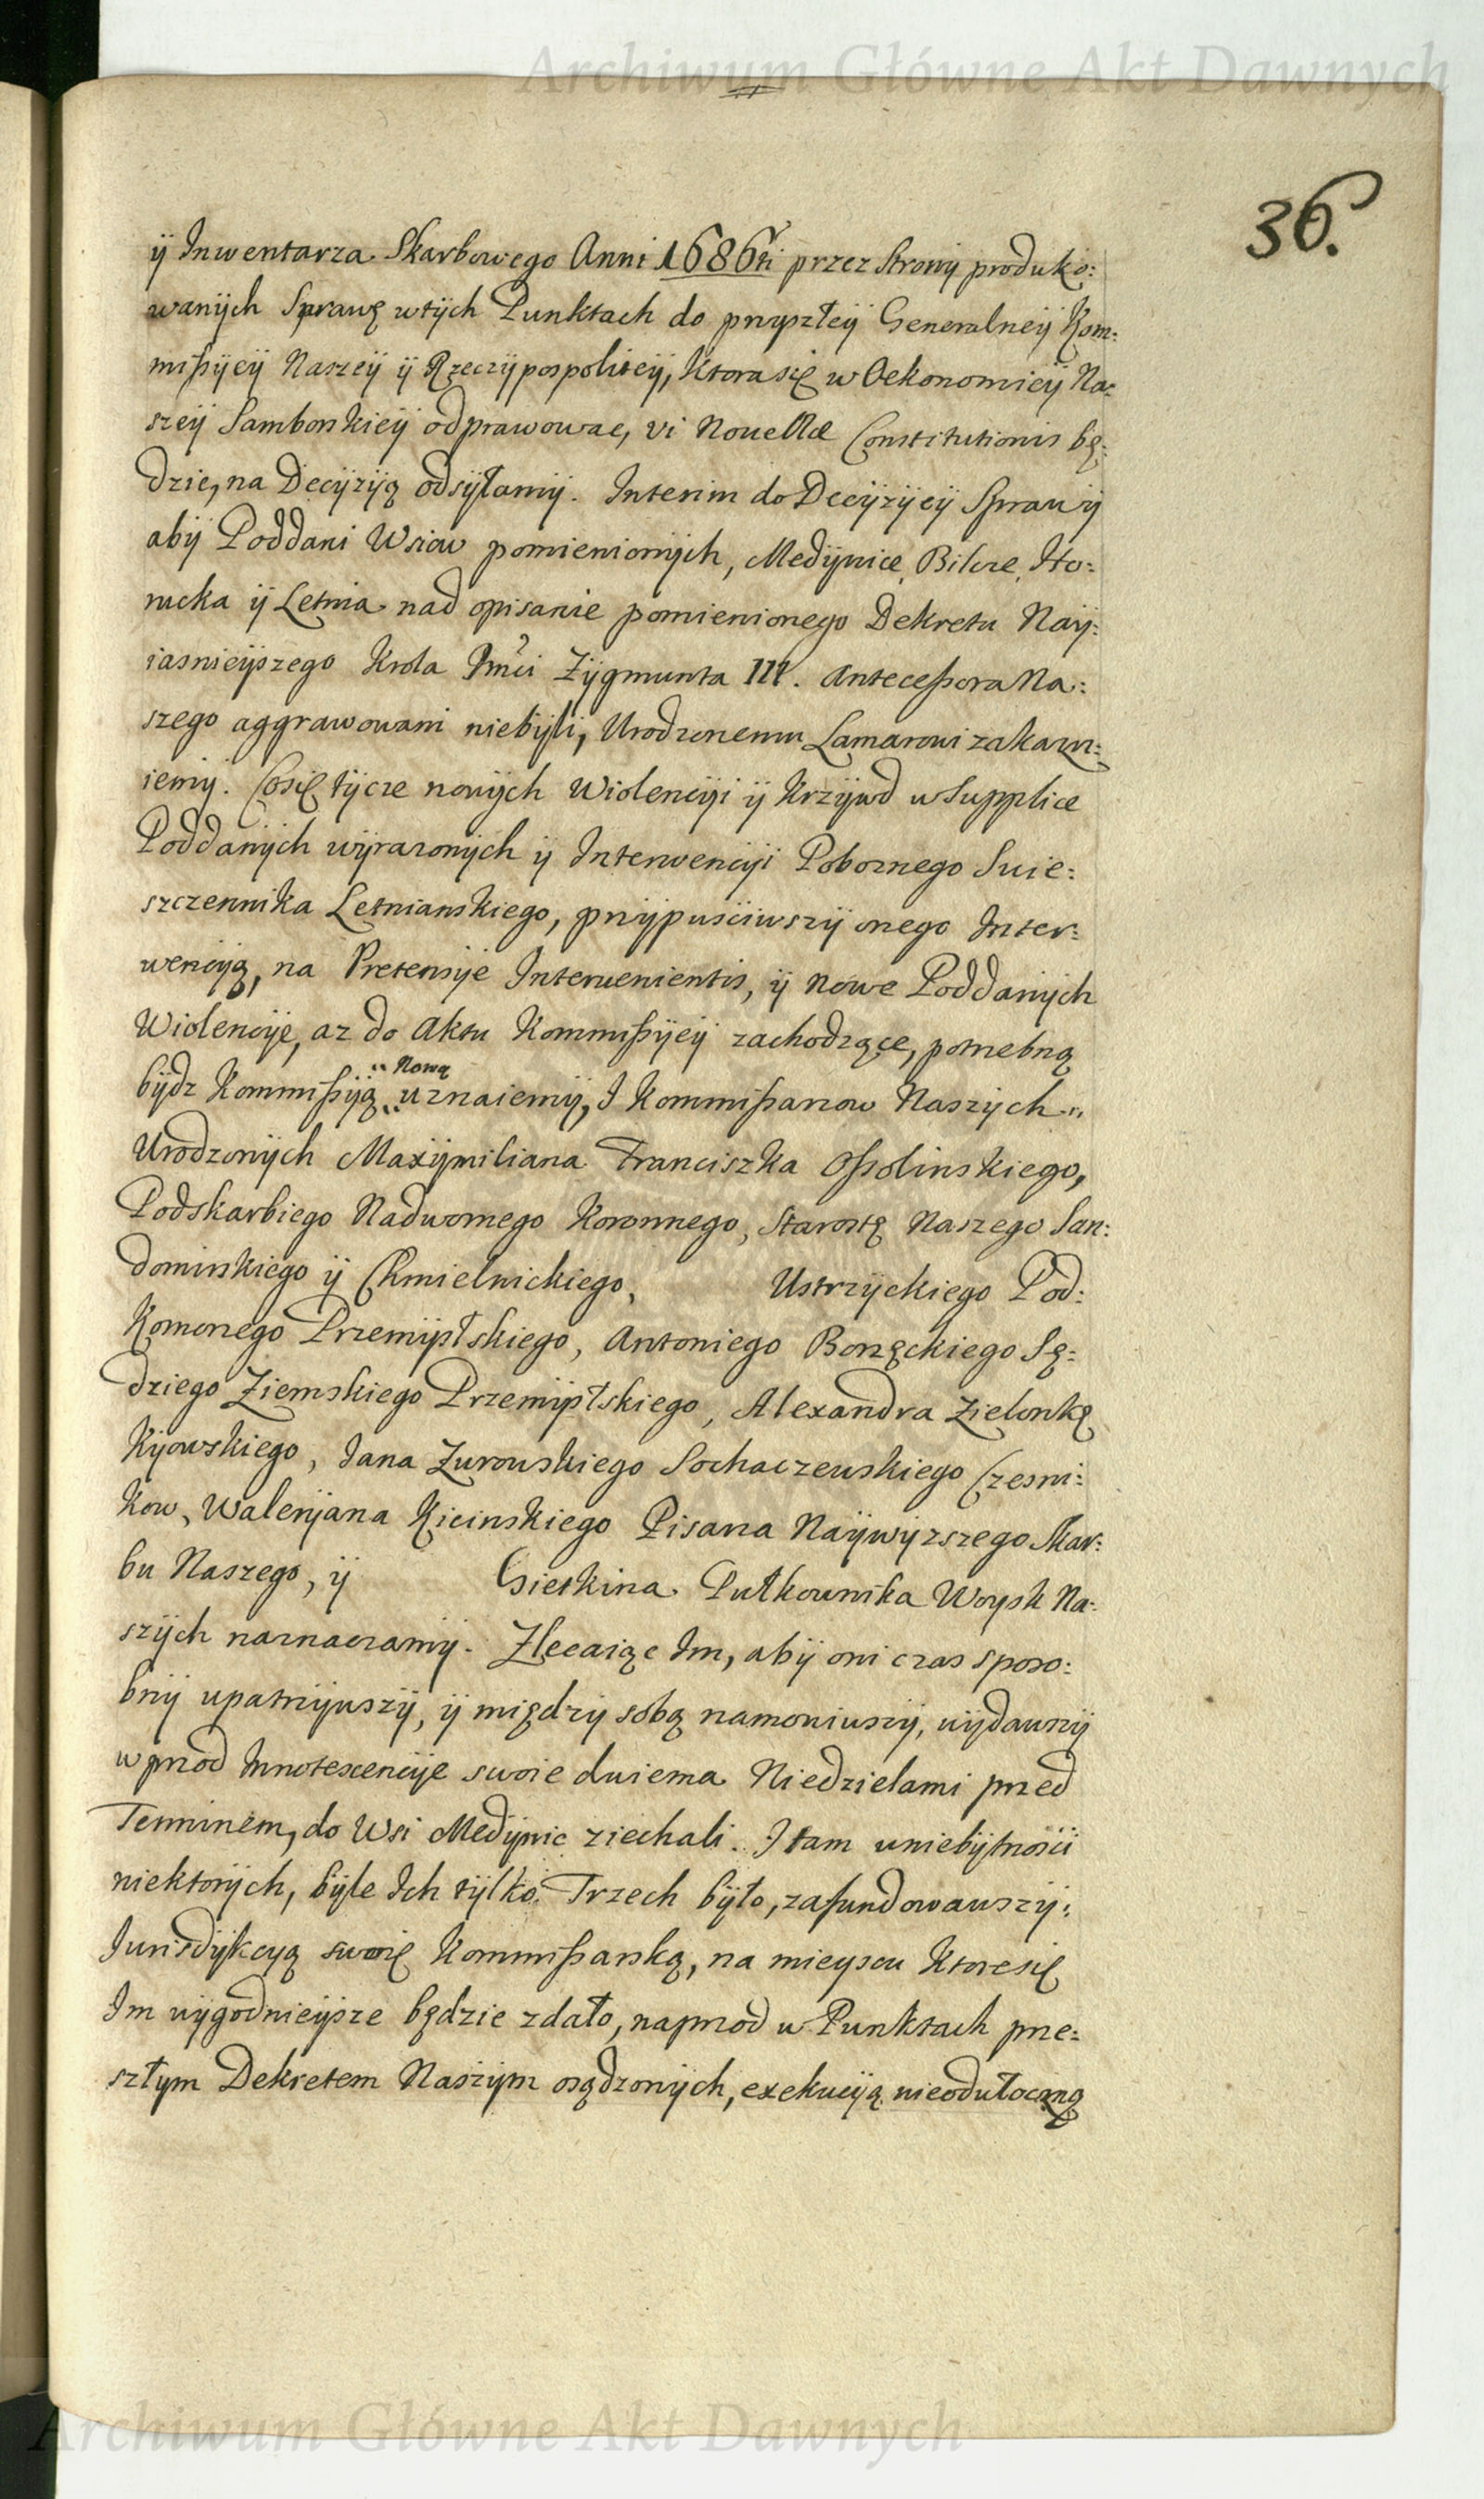 Archiwum Główne Akt Dawnych
36.
ÿ Inwentarza Skarbowego Anni 1686ti przez Stronÿ produko:
wanÿch Sprawę wtÿch Punktach do przyszłeÿ Generalneÿ Kom:
mißÿeÿ Naszeÿ ÿ Rzeczÿpospoliteÿ, Ktora się w Oekonomieÿ Na:
szeÿ Samborskieÿ odprawowac, vi Novellæ Constitutionis bę:
dzie, na Decÿzÿą odsÿłamÿ. Interim do Decÿzÿeÿ Sprawÿ
abÿ Poddani Wsiow pomienionÿch, Medÿnice, Bilcze, Ho:
rucka ÿ Letnia nad opisanie pomienionego Dekretu Naÿ:
iasnieÿszego Krola Jmći Zÿgmunta III. Anteceßora Na:
szego aggrawowani niebÿli, Urodzonemu Lamarowi zakazu:
iemÿ. Cosię tÿcze nowÿch Wiolencÿi ÿ Krzÿwd w Supplice
Poddanÿch wÿrazonÿch ÿ Interwencÿi Pobornego Swie:
szczennika Letnianskiego, przÿpusciwszÿ onego Inter:
wencÿą, na Pretensÿe Intervenientis, ÿ Nowe Poddanÿch
Wiolencÿe, az do Aktu Kommißÿeÿ zachodzące, potrzebną
bÿdz Kommißÿą Nową uznaiemÿ, I Kommißarzow Naszÿch
Urodzonÿch Maxÿmiliana Franciszka Oßolinskiego,
Podskarbiego Nadwornego Koronnego, Starostę Naszego San:
domirskiego ÿ Chmielnickiego, Ustrzÿckiego Pod:
Komorzego Przemÿslskiego, Antoniego Borzęckiego Sę:
dziego Ziemskiego Przemÿslskiego, Alexandra Zielonkę
Kÿowskiego, Jana Zurowskiego Sochaczewskiego Czesni:
kow, Walerÿana Kicinskiego Pisarza Naÿwÿzszego Skar:
bu Naszego, ÿ Gietkina Pułkownika Woysk Na:
szÿch naznaczamÿ. Zlecaiąc Im, abÿ oni czas sposo:
bnÿ upatrzÿwszÿ, ÿ międzÿ sobą namowiwszÿ, wÿdawszÿ
wprzod Innotescencÿe swoie dwiema Niedzielami przed
Terminem, do Wsi Medÿnic ziechali. I tam wniebÿtnosci
niektorÿch, bÿle Ich tÿlko Trzech bÿło, zafundowawszÿ
Jurisdÿkcyą swoię Kommißarską, na mieyscu Ktore się
Im wÿgodnieÿsze będzie zdało, naprzod w Punktach prze:
szłym Dekretem Naszÿm osądzonÿch, exekucÿą nieodwłoczną
Archiwum Główne Akt Dawnych